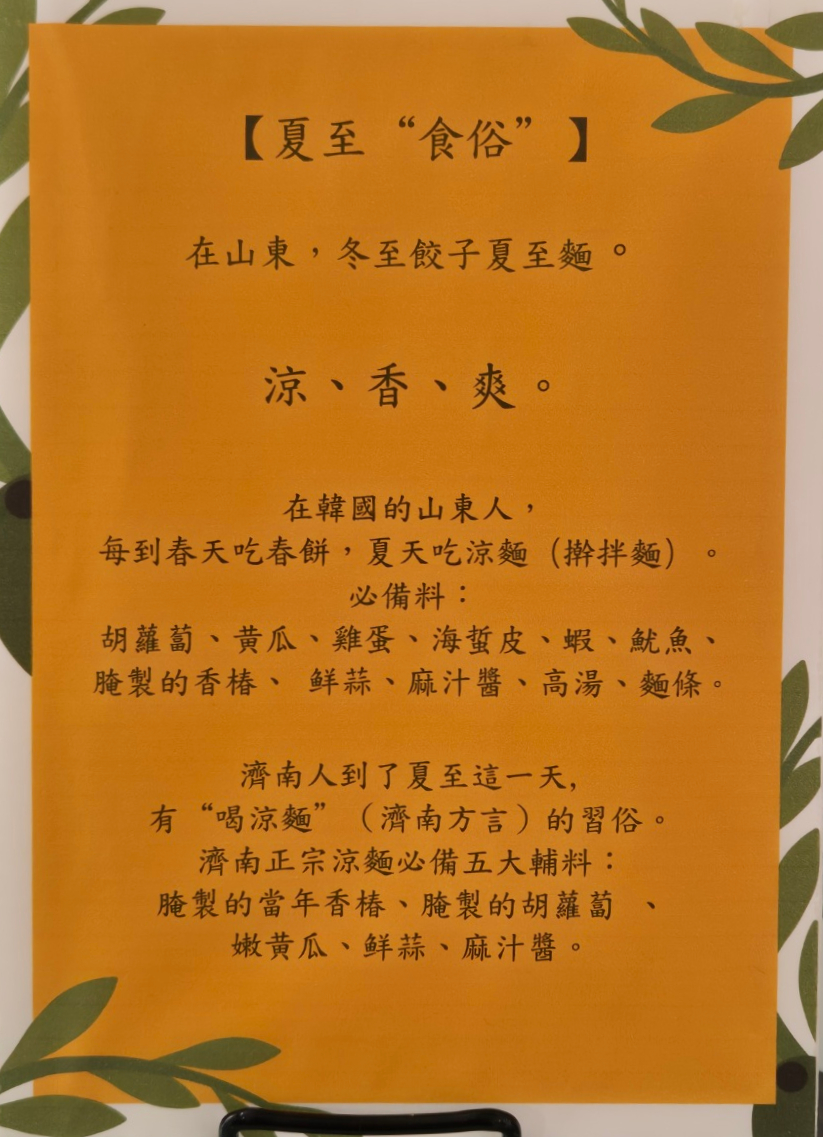 【夏至“食俗”】
在山東，冬至餃子夏至麵。
涼、香、爽。
在韓國的山東人，
每到春天吃春餅，夏天吃涼麵（擀拌麵）。
必備料：
胡蘿蔔、黃瓜、雞蛋、海蜇皮、蝦、魷魚、
腌製的香椿、 鮮蒜、麻汁醬、高湯、麵條。
濟南人到了夏至這一天,
有“喝涼麵”（濟南方言）的習俗。
濟南正宗涼麵必備五大輔料：
腌製的當年香椿、腌製的胡蘿蔔 、
嫩黃瓜、鮮蒜、麻汁醬。